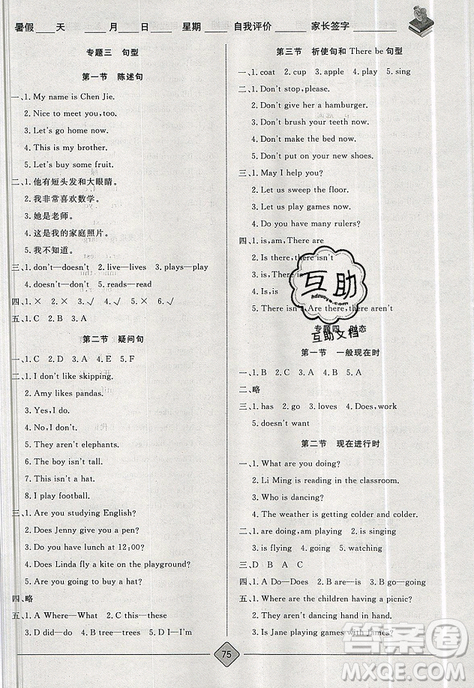 暑假____天 ____月____日 星期____ 自我评价______ 家长签字______
专题三 句型
第一节 陈述句
一、1. My name is Chen Jie.
2. Nice to meet you, too!
3. Let's go home now.
4. This is my brother.
5. Let's buy some fruit.
二、1.他有短头发和大眼睛。
2.我非常喜欢数学。
3.她是老师。
4.这是我的家庭照片。
5.我不知道。
三、1. don't—don't 2. live—lives 3. plays—play
4. doesn't—don't 5. reads—read
四、1. × 2. × 3. √ 4. × 5. √
五、1. C 2. C 3. A 4. C 5. A
第二节 疑问句
一、1. C 2. D 3. B 4. A 5. E
二、1. I don't like skipping.
2. Amy likes pandas.
3. Yes, I do.
4. No, I don't.
5. They aren't elephants.
6. The boy isn't tall.
7. This isn't a hat.
8. I play football.
三、1. Are you studying English?
2. Does Jenny grow flowers?
3. Do you have lunch at 12:00?
4. Does Linda fly a kite on the playground?
5. Do they want to buy a hat?
四、略
五、1. A Where—What 2. C this—these
3. D did—do 4. A do—does 5. D I—I'm
第三节 祈使句和 There be 句型
一、1. coat 2. cup 3. a 4. play 5. sing
二、1. Don't stop, please!
2. Don't give her a hamburger.
3. Don't brush your teeth now.
4. Don't make the bed now.
5. Don't put on your new shoes.
三、1. May I help you?
2. Let us sweep the floor.
3. Let us play games now.
4. Do you have many rulers?
四、1. is, am, There are
2. Is there, there isn't
3. Is, is
5. There isn't
专题四 时态
第一节 一般现在时
一、1. B 2. B 3. A 4. C 5. B
二、略
三、1. goes 2. like 3. wants 4. have
5. doesn't want
第二节 现在进行时
一、1. What are you doing?
2. Li Ming is reading in the classroom.
3. What are you doing?
4. The weather is getting colder and colder.
二、1. are doing, am playing 2. are swimming
3. is flying 4. is singing, are listening
三、D B A C
四、1. A Do—Does 2. C sing—singing
3. A dance—dancing 4. A are—is
五、1. Where are the children having a picnic?
2. What are they doing?
3. Is Jane playing games with James?
互助
互助文档
75
答案圈
MXQE.COM